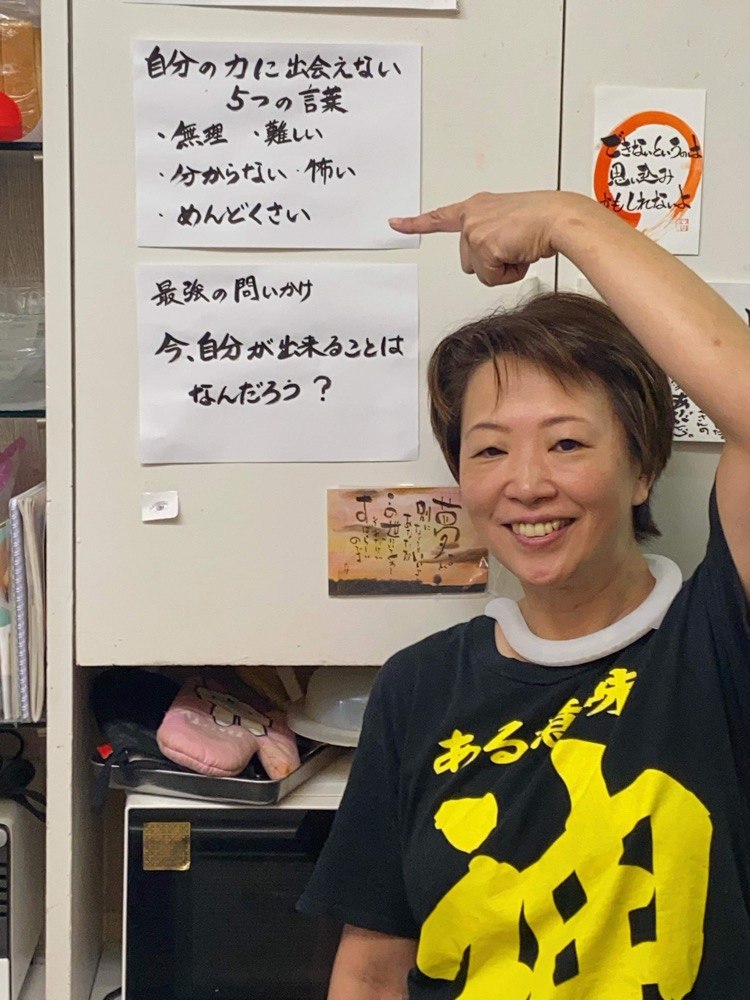 自分の力に出会えない
5つの言葉
・無理 ・難しい
・分からない ・怖い
・めんどくさい
最強の問いかけ
今、自分が出来ることは
なんだろう?
できないというのは
思い込み
かもしれないよ
夢。
この世に
すばらしい
ある意味
神